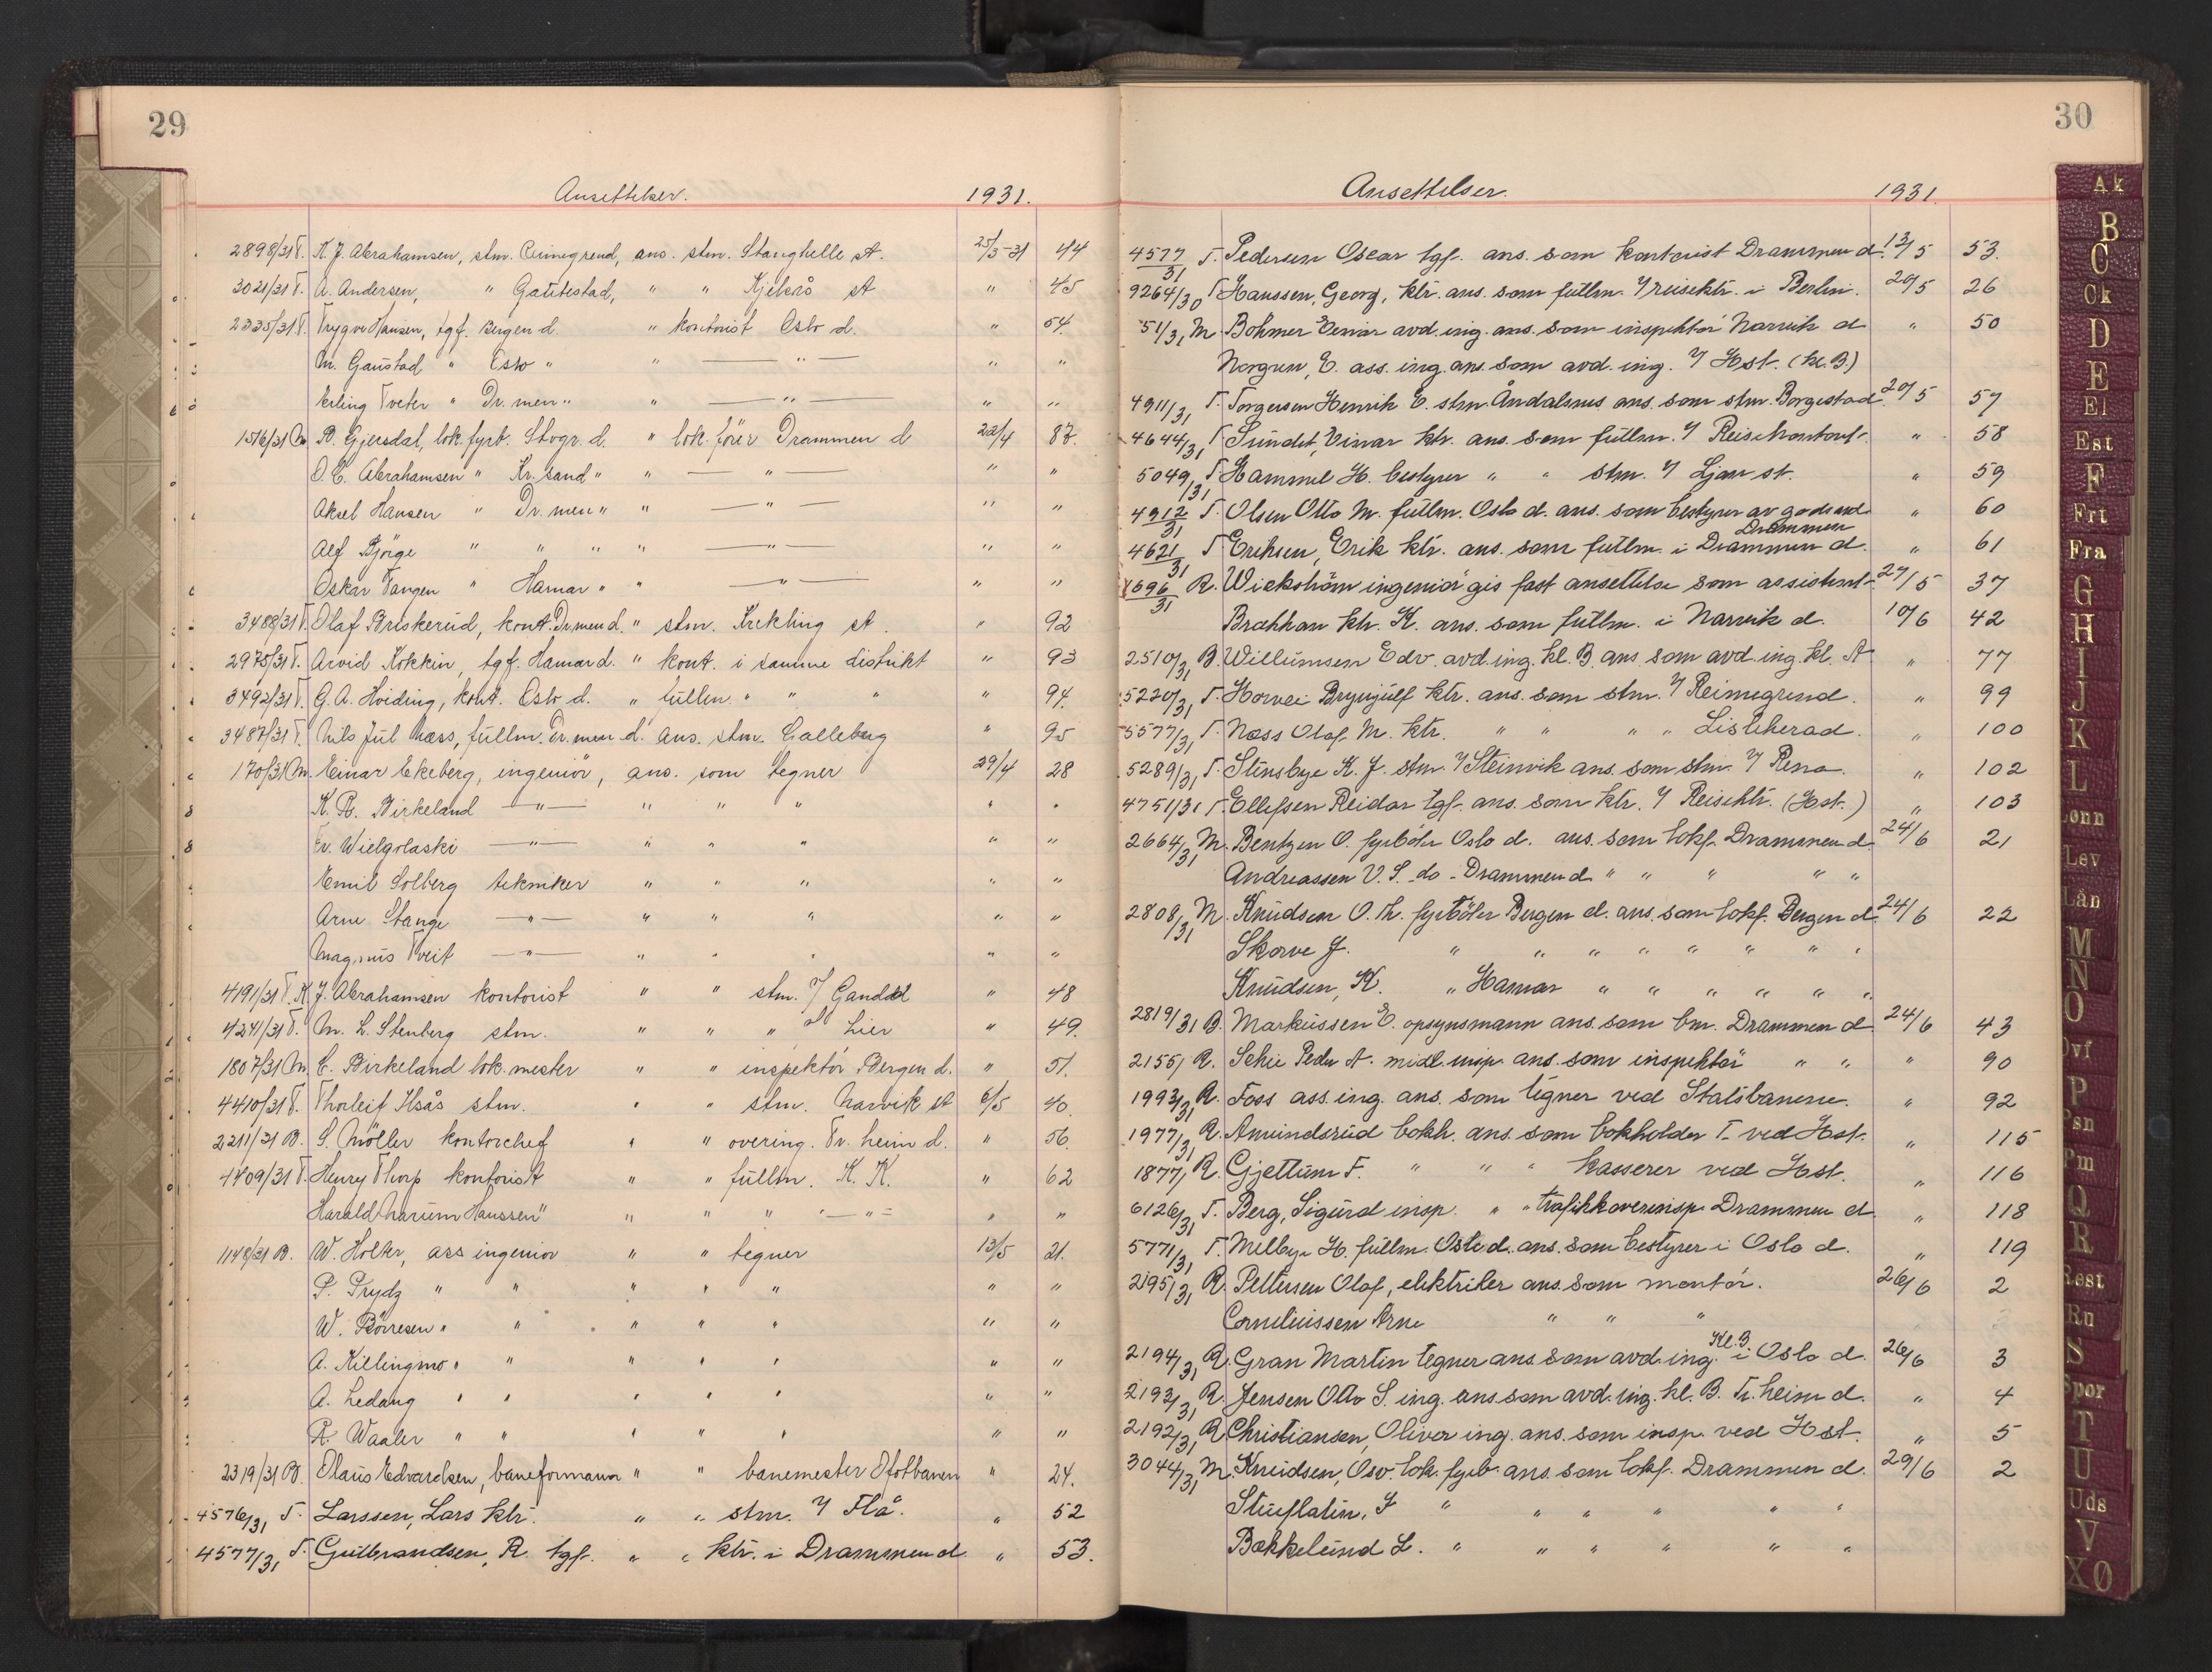 29
Ansettelser. 1931.
2898/31 T. K. J. Abrahamsen, stm. Reimegrend, ans. stm. Stanghelle st. 25/3-31 44
3021/31 T. A. Andersen, " Gautestad, " " Kjelsås st " 45
2335/31 T. Trygve Hansen, tgf. Bergen d. " kontorist Oslo d. " 54.
M. Gaustad " Oslo " " — " — " "
Erling Tveter " Dr.men " " — " — " "
1516/31 M. B. Gjersdal, lok.fyrb. Stvgr. d. " lok.förer Drammen d 22/4 87.
O. C. Abrahamsen " Kr.sand " " — " — " "
Aksel Hansen " Dr.men " " — " — " "
Alf Björge " " " " — " — " "
Oskar Tangen " Hamar " " — " — " "
3488/31 T. Olaf Briskerud, kont. Dr.men d. " stm. Krekling st. " 92
2975/31 T. Arvid Kokkin, tgf. Hamar d. " kont. i samme distrikt " 93
3492/31 T. G. A. Hviding, kont. Oslo d. " fullm. " " " " 94.
3487/31 T. Nils Jul Næss, fullm. Dr.men d. ans. stm. Galleberg " 95
170/31 M. Einar Ekeberg, ingeniör, ans. som tegner 29/4 28
K. R. Birkeland — " — " " " " "
Fr. Wielgolaski — " — " " " " "
Emil Solberg tekniker " " " " "
Arne Stange — " — " " " " "
Magnus Tveit — " — " " " " "
4191/31 T. K. J. Abrahamsen kontorist " " stm. v/ Ganddal " 48
4241/31 T. M. L. Stenberg stm. " " " Lier " 49.
1807/31 M. C. Birkeland lok.mester " " inspektör Bergen d. " 51.
4410/31 T. Thorleif Hsås stm. " " stm. Narvik st 6/5 40.
2211/31 B. S. Möller kontorchef " " overing. Tr.heim d. " 56.
4409/31 T. Henry Thorp kontorist " " fullm. K. K. " 62
Harald Marium Hanssen " " " " — " = " "
1148/31 B. W. Holter, ass ingeniör " " tegner 13/5 21.
P. Prydz " " " " " " "
W. Börresen " " " " " " "
A. Killingmo " " " " " " "
A. Ledang " " " " " " "
R. Waaler " " " " " " "
2319/31 B. Olaus Edvardsen, baneformann " " banemester Ofotbanen " 24.
4576/31 T. Larssen, Lars ktr. " " stm. v/ Flå. " 52
4577/31 T. Gulbrandsen, R. tgf. " " ktr. i Drammen d. " 53.
30
Ansettelser. 1931.
4577/31 T. Pedersen Oscar tgf. ans. som kontorist Drammen d. 13/5 53.
9264/30 T Hanssen, Georg, ktr. ans. som fullm. v/ reisektr. i Berlin. 20/5 26
51/31 M. Bohmer Einar avd.ing. ans. som inspektör Narvik d " 50
Norgren, E. ass. ing. ans. som avd. ing. v/ Hst. (kl. B.)
4911/31 T. Torgersen Henrik E. stm Åndalsnes ans. som stm. Borgestad 20/5 57
4644/31 T Sundet, Einar ktr. ans. som fullm. v/ Reisekontoret " 58
5049/31 T Hammel H. bestyrer " " stm. v/ Ljan st. " 59
4912/31 T. Olsen Otto M. fullm. Oslo d. ans. som bestyrer av godsexd. Drammen " 60
4621/31 T Eriksen, Erik ktr. ans. som fullm. i Drammen d. " 61
1696/31 R. Wickström ingeniör gis fast ansettelse som assistent 27/5 37
Brahhan ktr. K. ans. som fullm. i Narvik d. 10/6 42
2510/31 B. Willumsen Edv. avd.ing. kl. B. ans. som avd. ing. kl. A " 77
5220/31 T. Horvei Brynjulf ktr. ans. som stm. v/ Reimegrend. " 99
5577/31 T. Næss Olaf M. ktr. " " " " Lisleherad. " 100
5289/31 T. Stensbye K. J. stm. v/ Steinvik ans. som stm. v/ Rena. " 102
4751/31 T. Ellefsen Reidar tgf. ans. som ktr. v/ Reisektr. (Hst.) " 103
2664/31 M. Bentzen O. fyrböter Oslo d. ans. som lokf. Drammen d. 24/6 21
Andreassen V. S. do - Drammen d " " " " "
2808/31 M. Knudsen O. Th. fyrböter Bergen d. ans. som lokf. Bergen d. 24/6 22
Skorve J. " " " " " " " "
Knudsen, K. " Hamar " " " " " "
2819/31 B. Markussen E. opsynsmann ans. som bm. Drammen d. 24/6 43
2155/ R. Schie Peder A. midl. insp. ans. som inspektör " " " 90
1993/31 R. Foss ass. ing. ans. som tegner ved Statsbanene. " 92
1977/31 R. Amundsrud bokh. ans. som bokholder I. ved Hst. " 115
1877/ R. Gjettum F. " " " kasserer ved Hst. " 116
6126/31 T. Berg, Sigurd insp. " " trafikkoverinsp. Drammen d " 118
5771/31 T. Melbye H. fullm. Oslo d. ans. som bestyrer i Oslo d. " 119
2195/31 R. Pettersen Olaf, elektriker ans. som montör. 26/6 2
Corneliussen Arne " " "
2194/31 R. Gran Martin tegner ans. som avd. ing. Kl. B. i Oslo d. 26/6 3
2193/31 R. Jensen Otto S. ing. ans. som avd. ing. kl. B. Tr.heim d. " 4
2192/31 R Christiansen, Oliver ing. ans. som insp. ved Hst. " 5
3044/31 M. Knudsen, Osv. lok. fyrb. ans. som lokf. Drammen d. 29/6 2
Stuflaten, J " " " " " "
Bækkelund L. " " " " " "
Ak
B
C
Ck
D
E
El
Est
F
Frt
Fra
G
H
I
J
K
L
Lønn
Lev
Lån
M
N
O
Ovf
P
Psn
Pm
Q
R
Rest
Ru
S
Spor
T
U
Uds
V
XØ